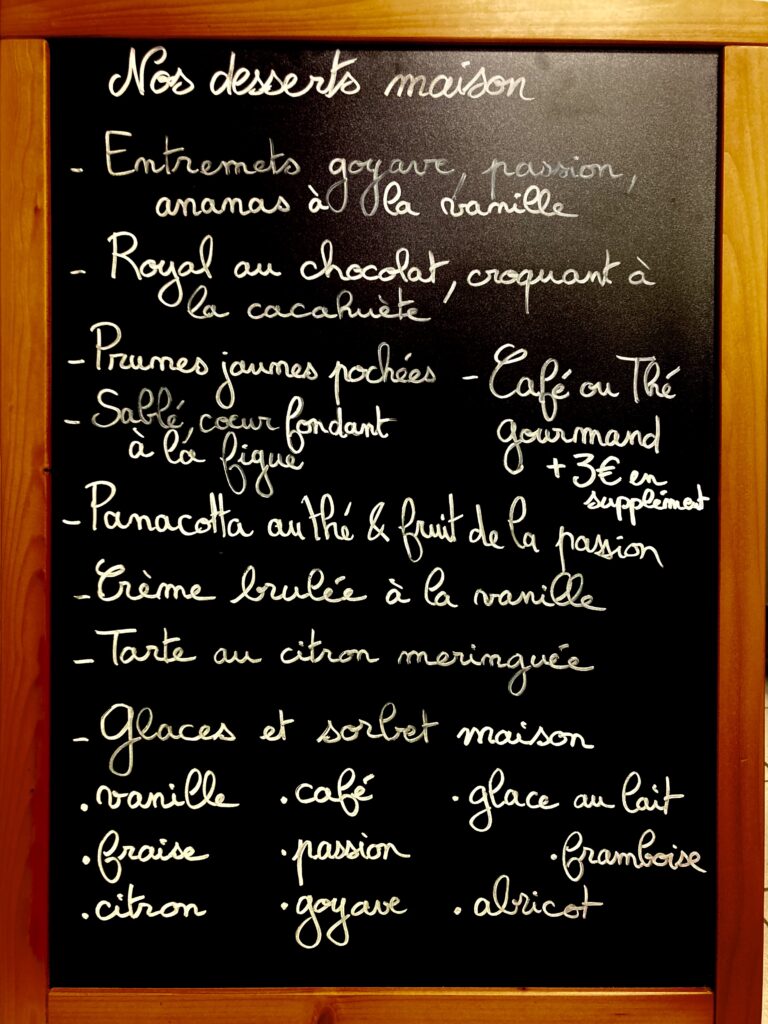 Nos desserts maison
- Entremets goyave, passion,
ananas à la vanille
- Royal au chocolat, croquant à
la cacahuète
- Prunes jaunes pochées
- Sablé, cœur fondant
à la figue
- Café ou Thé
gourmand
+ 3€ en
supplément
- Panacotta au thé & fruit de la passion
- Crème brulée à la vanille
- Tarte au citron meringuée
- Glaces et sorbet maison
. vanille . café . glace au lait
. fraise . passion . framboise
. citron . goyave . abricot